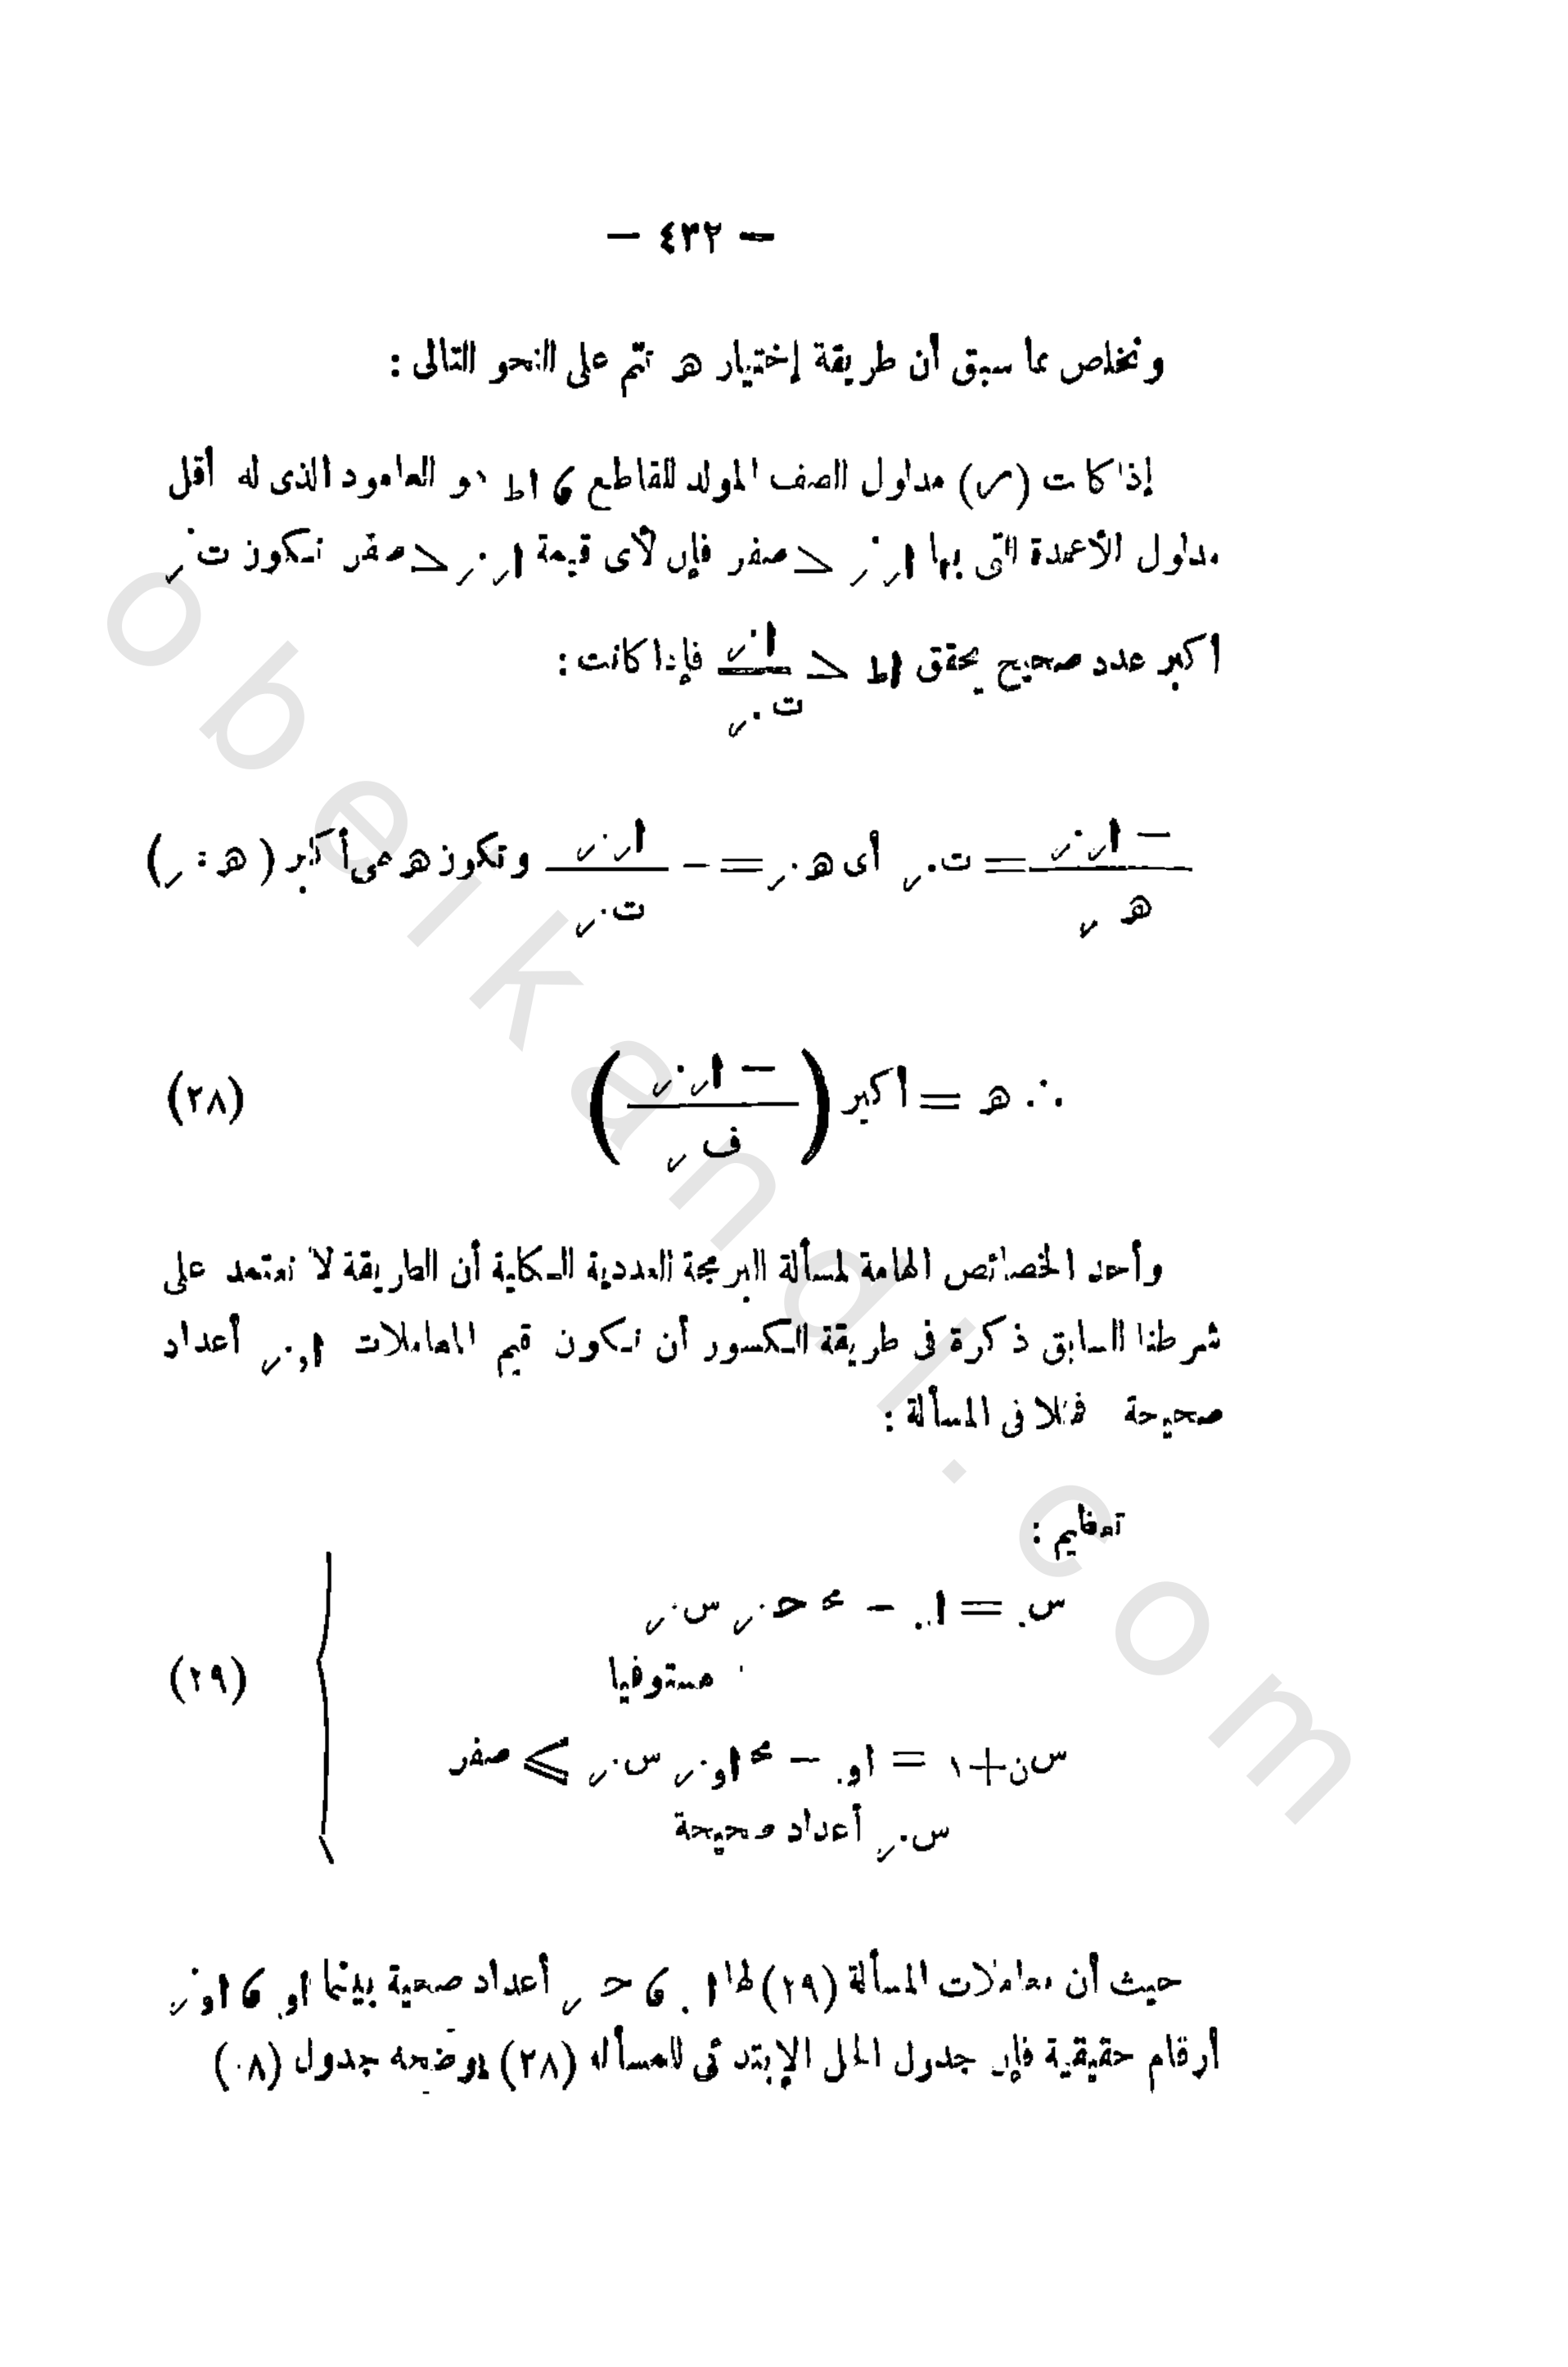 — ٤٣٢ —
ونخلص مما سبق أن طريقة إختيار هـ تتم على النحو التالى :
إذا كانت (ر) مدلول الصف المولد للقاطع ، اط هو العامود الذى له أقل
مدلول الأعمدة التى بها ار.ر < صفر فإن لأى قيمة ار.ر < صفر تكون ت.ر
أكبر عدد صحيح يحقق اط < ا.ر / ت.ر فإذا كانت :
— ار.ر / هـ ر = ت.ر أى هـ.ر = — ار.ر / ت.ر وتكون هـ هى أكبر ( هـ : ر )
∴ هـ = أكبر ( — ار.ر / ف ر ) (٢٨)
وأحد الخصائص الهامة لمسألة البرمجة العددية الكلية أن الطريقة لا تعتمد على
شرطنا السابق ذكرة فى طريقة الكسور أن تكون قيم المعاملات او.ر أعداد
صحيحة فمثلا فى المسألة :
تعظيم :
س. = ا.. — مح حـ.ر س.ر
مستوفيا
س ن+١ = او. — مح او.ر س.ر ⩾ صفر (٢٩)
س.ر أعداد صحيحة
حيث أن معاملات المسألة (٢٩) لها ا. ، حـ ر أعداد صحية بينما او. ، او.ر
أرقام حقيقية فإن جدول الحل الإبتدائى للمسأله (٢٨) يوضحه جدول (٠٨)
obeikandl.com